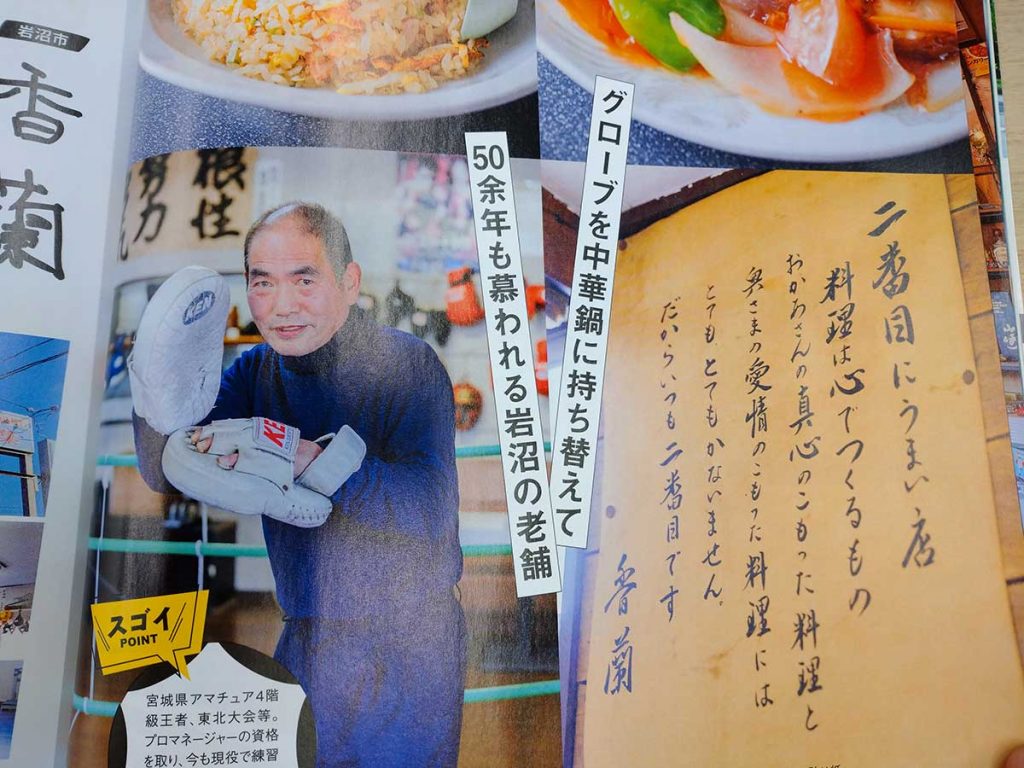 岩沼市
香蘭
グローブを中華鍋に持ち替えて
50余年も慕われる岩沼の老舗
根性
努力
KEN
二番目にうまい店
料理は心でつくるもの
おかあさんの真心のこもった料理と
奥さまの愛情のこもった料理には
とても、とてもかないません。
だからいつも二番目です
香蘭
スゴイ
POINT
宮城県アマチュア4階
級王者、東北大会等。
プロマネージャーの資格
を取り、今も現役で練習